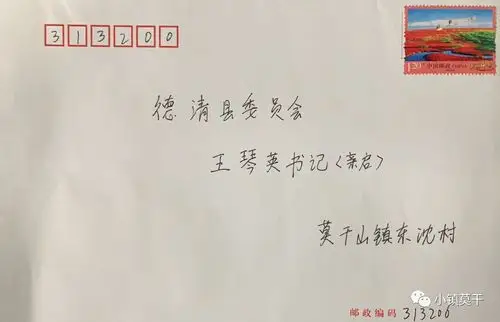 313200
1.20元
中国邮政
德清县委员会
王琴英书记(亲启)
莫干山镇东沈村
小镇莫干
邮政编码 313206